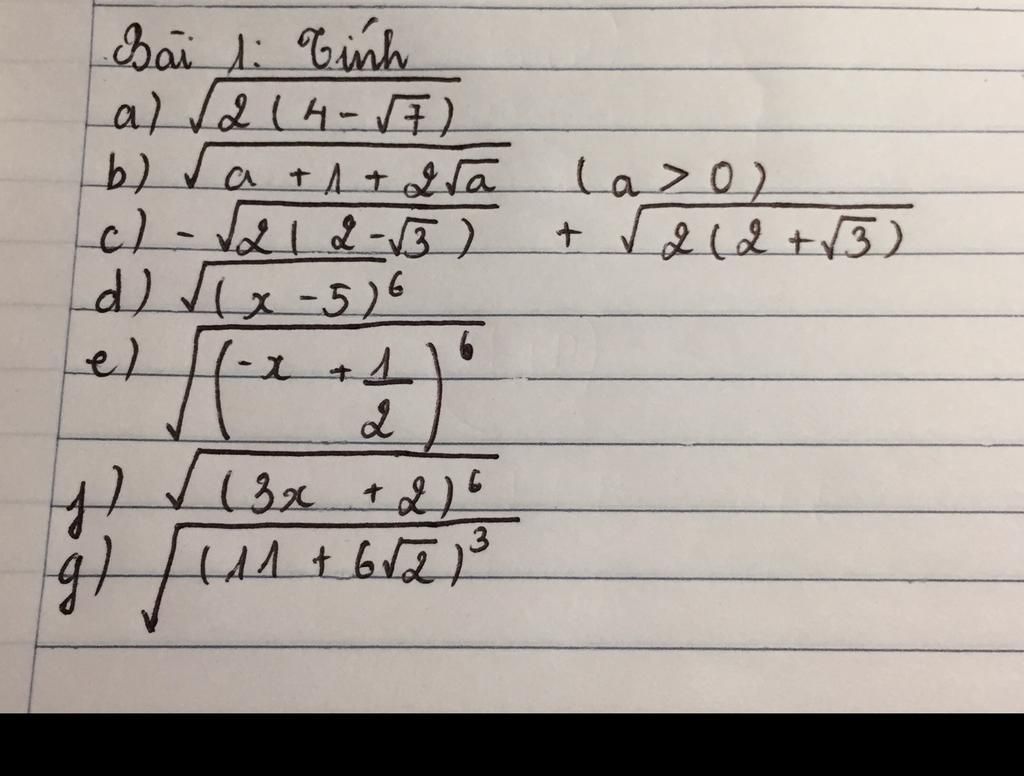 Bài 1: Tính
a) √(2(4-√7))
b) √(a+1+2√a) (a>0)
c) -√(2(2-√3)) + √(2(2+√3))
d) √((x-5)⁶)
e) √((-x+1/2)⁶)
f) √((3x+2)⁶)
g) √((11+6√2)³)